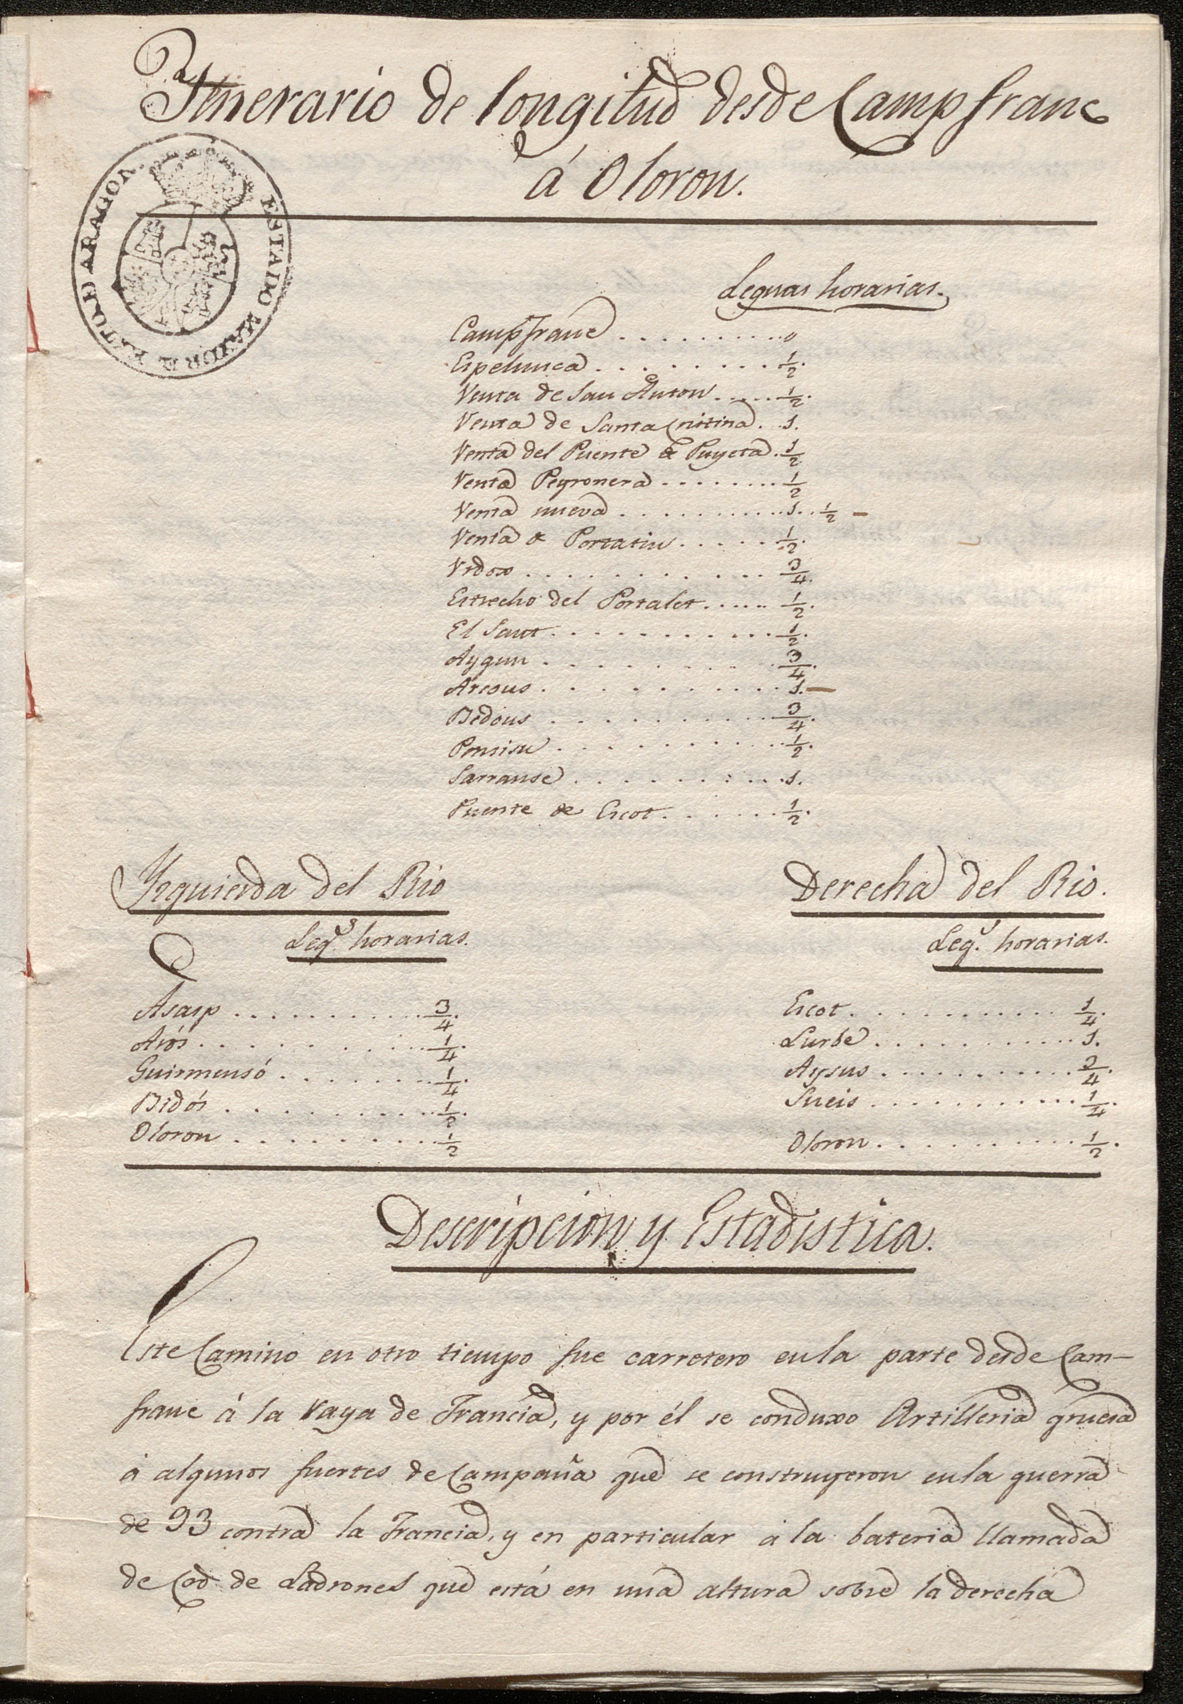 Itinerario de longitud desde Campfranc
á Oloron.
ESTADO MAYOR EXTO. D ARAGON.
Leguas horarias.
Campfranc . . . . . . . . . . 0
Espelunca . . . . . . . . 1/2.
Venta de San Anton . . . . . 1/2.
Venta de Santa Cristina . . 1.
Venta del Puente de Puyeta . 1/2
Venta Peyronera . . . . . . . . 1/2
Venta nueva . . . . . . . . . . 1. . 1/2 —
Venta de Portatiu . . . . . . 1/2.
Urdox . . . . . . . . . . . . 3/4.
Estrecho del Portalet . . . . . 1/2.
El Saut . . . . . . . . . . . 1/2.
Aygun . . . . . . . . . . . 3/4.
Arcous . . . . . . . . . . . 1. —
Bedous . . . . . . . . . . . 3/4.
Ponsisu . . . . . . . . . . . 1/2.
Sarranse . . . . . . . . . . 1.
Puente de Escot . . . . . . 1/2.
Yzquierda del Rio
Leg.s horarias.
Asasp . . . . . . . . . . . 3/4.
Arós . . . . . . . . . . . 1/4.
Guirmensó . . . . . . . . 1/4.
Bidós . . . . . . . . . . . 1/2.
Oloron . . . . . . . . . . 1/2
Derecha del Rio.
Leg.s horarias.
Escot . . . . . . . . . . . . 1/4.
Lurbe . . . . . . . . . . . 1.
Aysus . . . . . . . . . . . 3/4.
Sueis . . . . . . . . . . . 1/4.
Oloron . . . . . . . . . . 1/2.
Descripcion y Estadistica.
Este Camino en otro tiempo fue carretero en la parte desde Cam-
franc á la Raya de Francia, y por él se conduxo Artilleria gruesa
á algunos fuertes de Campaña que se construyeron en la guerra
de 93 contra la Francia, y en particular á la bateria llamada
de Cod. de Ladrones que está en una altura sobre la derecha